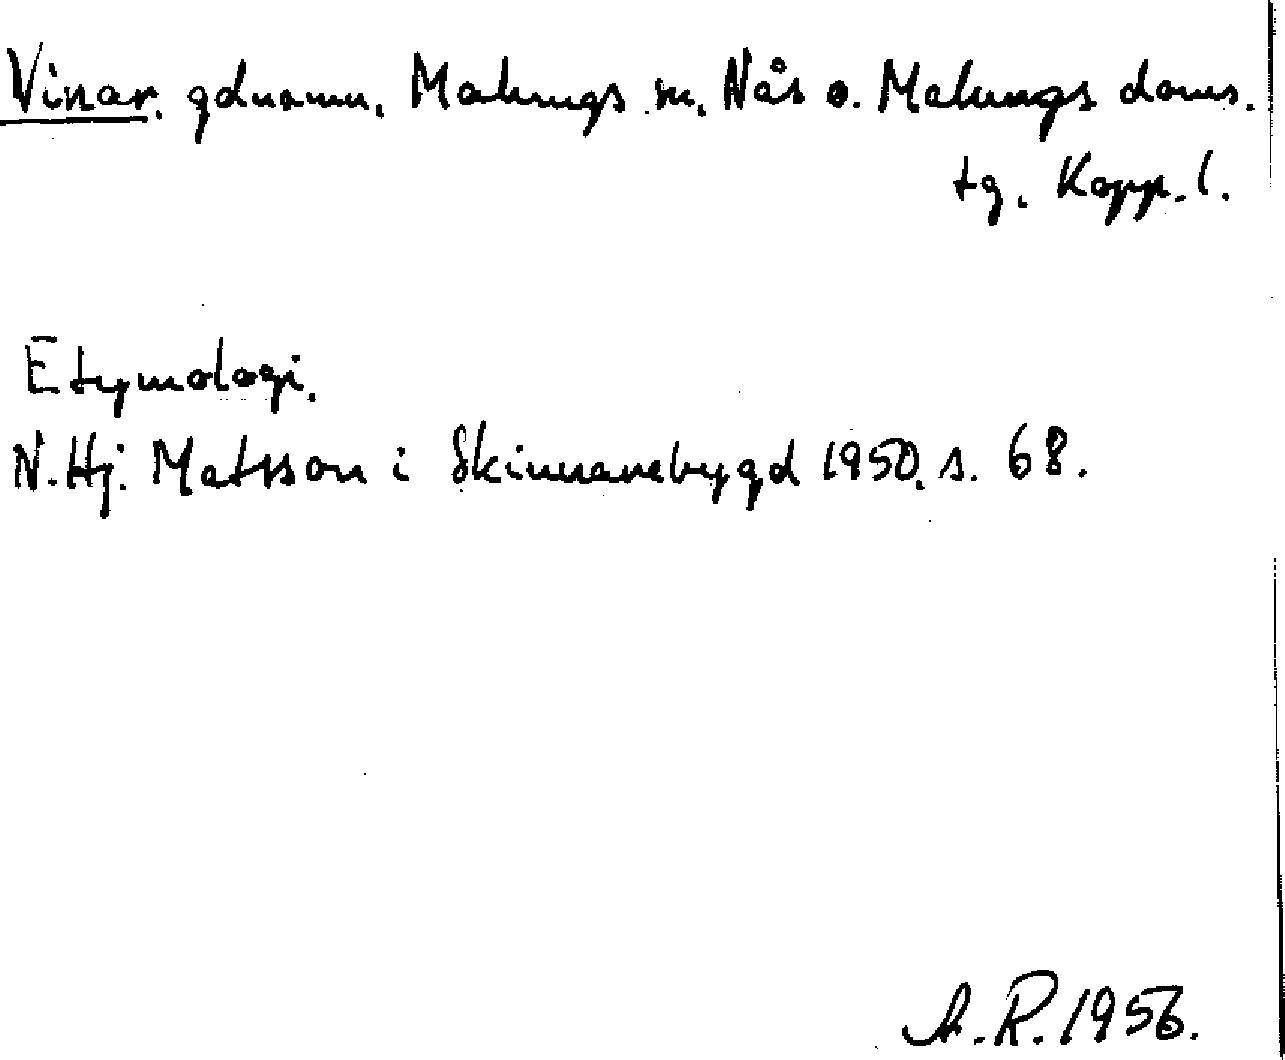 Vinar. gdnamn. Malungs sn. Nås o. Malungs doms.
tg. Kopp. l.
Etymologi.
N. Hj. Matsson i Skinnarebygd 1950. s. 68.
A. R. 1956.